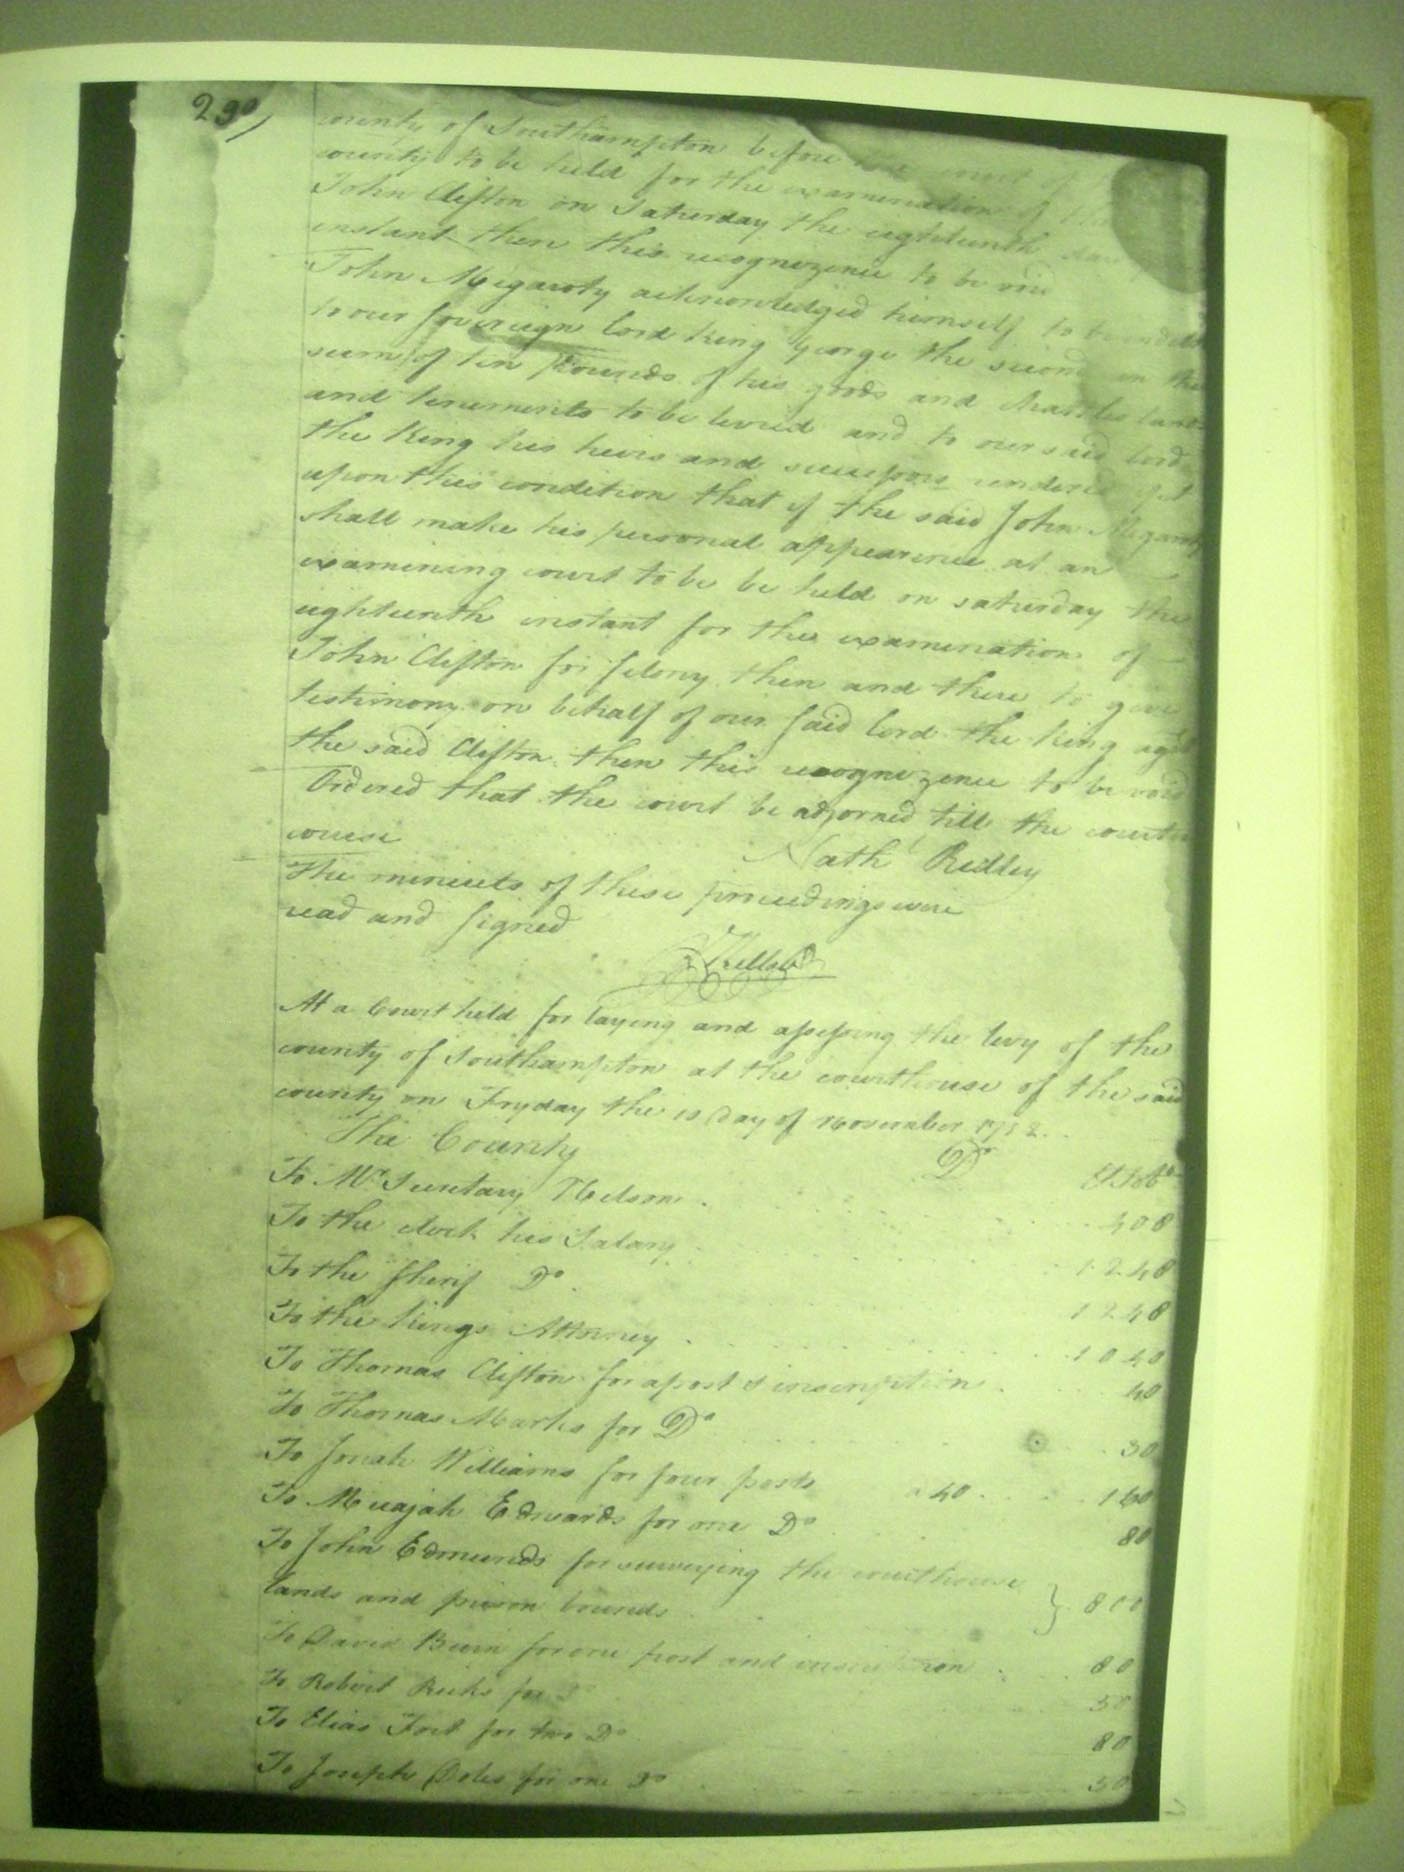 290
county of Southampton before the court of
county to be held for the examination of
John Clifton on Saturday the eighteenth day
instant then this recognizence to be void
John Megaroty acknowledged himself to be indebt
to our sovereign lord King George the second in the
sum of ten Pounds of his goods and chattles land
and tenements to be levied and to our said lord
the King his heirs and successors rendered yet
upon this condition that if the said John Megaroty
shall make his personal appearence at an
examining court to be be held on saturday the
eighteenth instant for the examination of
John Clifton for felony then and there to give
testimony on behalf of our said lord the King agst
the said Clifton then this recognizence to be void
Ordered that the court be adjorned till the court in
course
Nath Ridley
The minuets of these proceedings were
read and signed
At a Court held for laying and assessing the levy of the
county of Southampton at the courthouse of the said
county on Fryday the 10 Day of November 1752
The County Dr lt Tobo
To Mr Secretary Nelson 408
To the clerk his Salary 1248
To the Sherif Do 1248
To the Kings Attorney 1040
To Thomas Clifton for a post & inscription 40
To Thomas Marks for Do 30
To Jonah Williams for four posts a 40 160
To Micajah Edwards for one Do 80
To John Edmunds for surveying the courthouse
lands and prison bounds } 800
To David for one post and inscription 80
To Robert Ricks for 50
To Elias Fort for two Do 80
To Joseph Doles for one Do 50